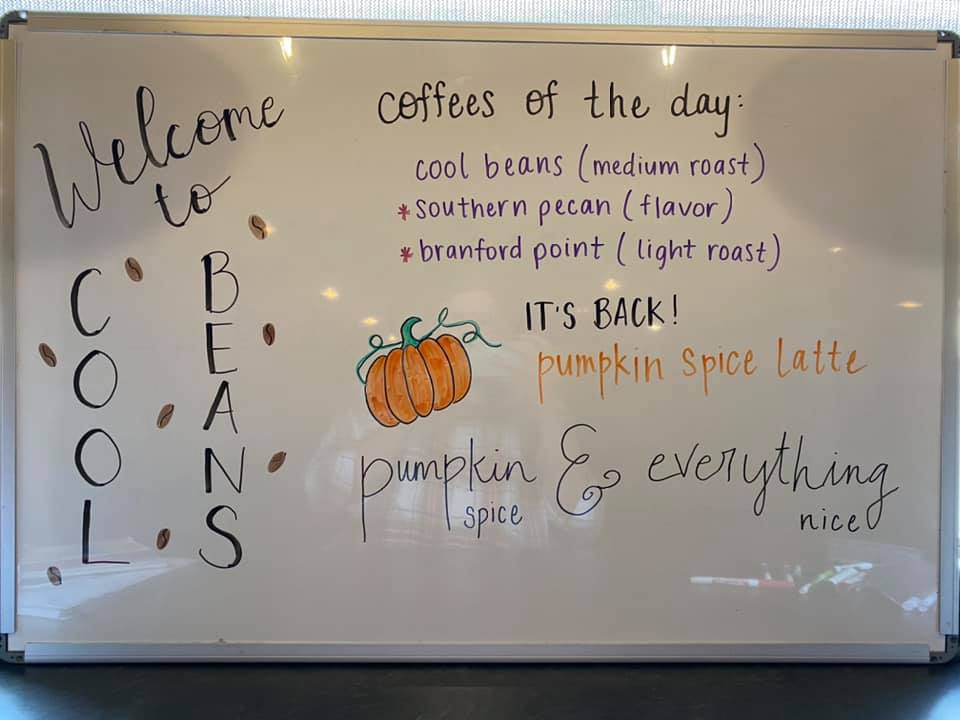 Welcome
to
COOL
BEANS
coffees of the day:
cool beans (medium roast)
*southern pecan (flavor)
*branford point (light roast)
IT'S BACK!
pumpkin spice latte
pumpkin & everything
spice nice